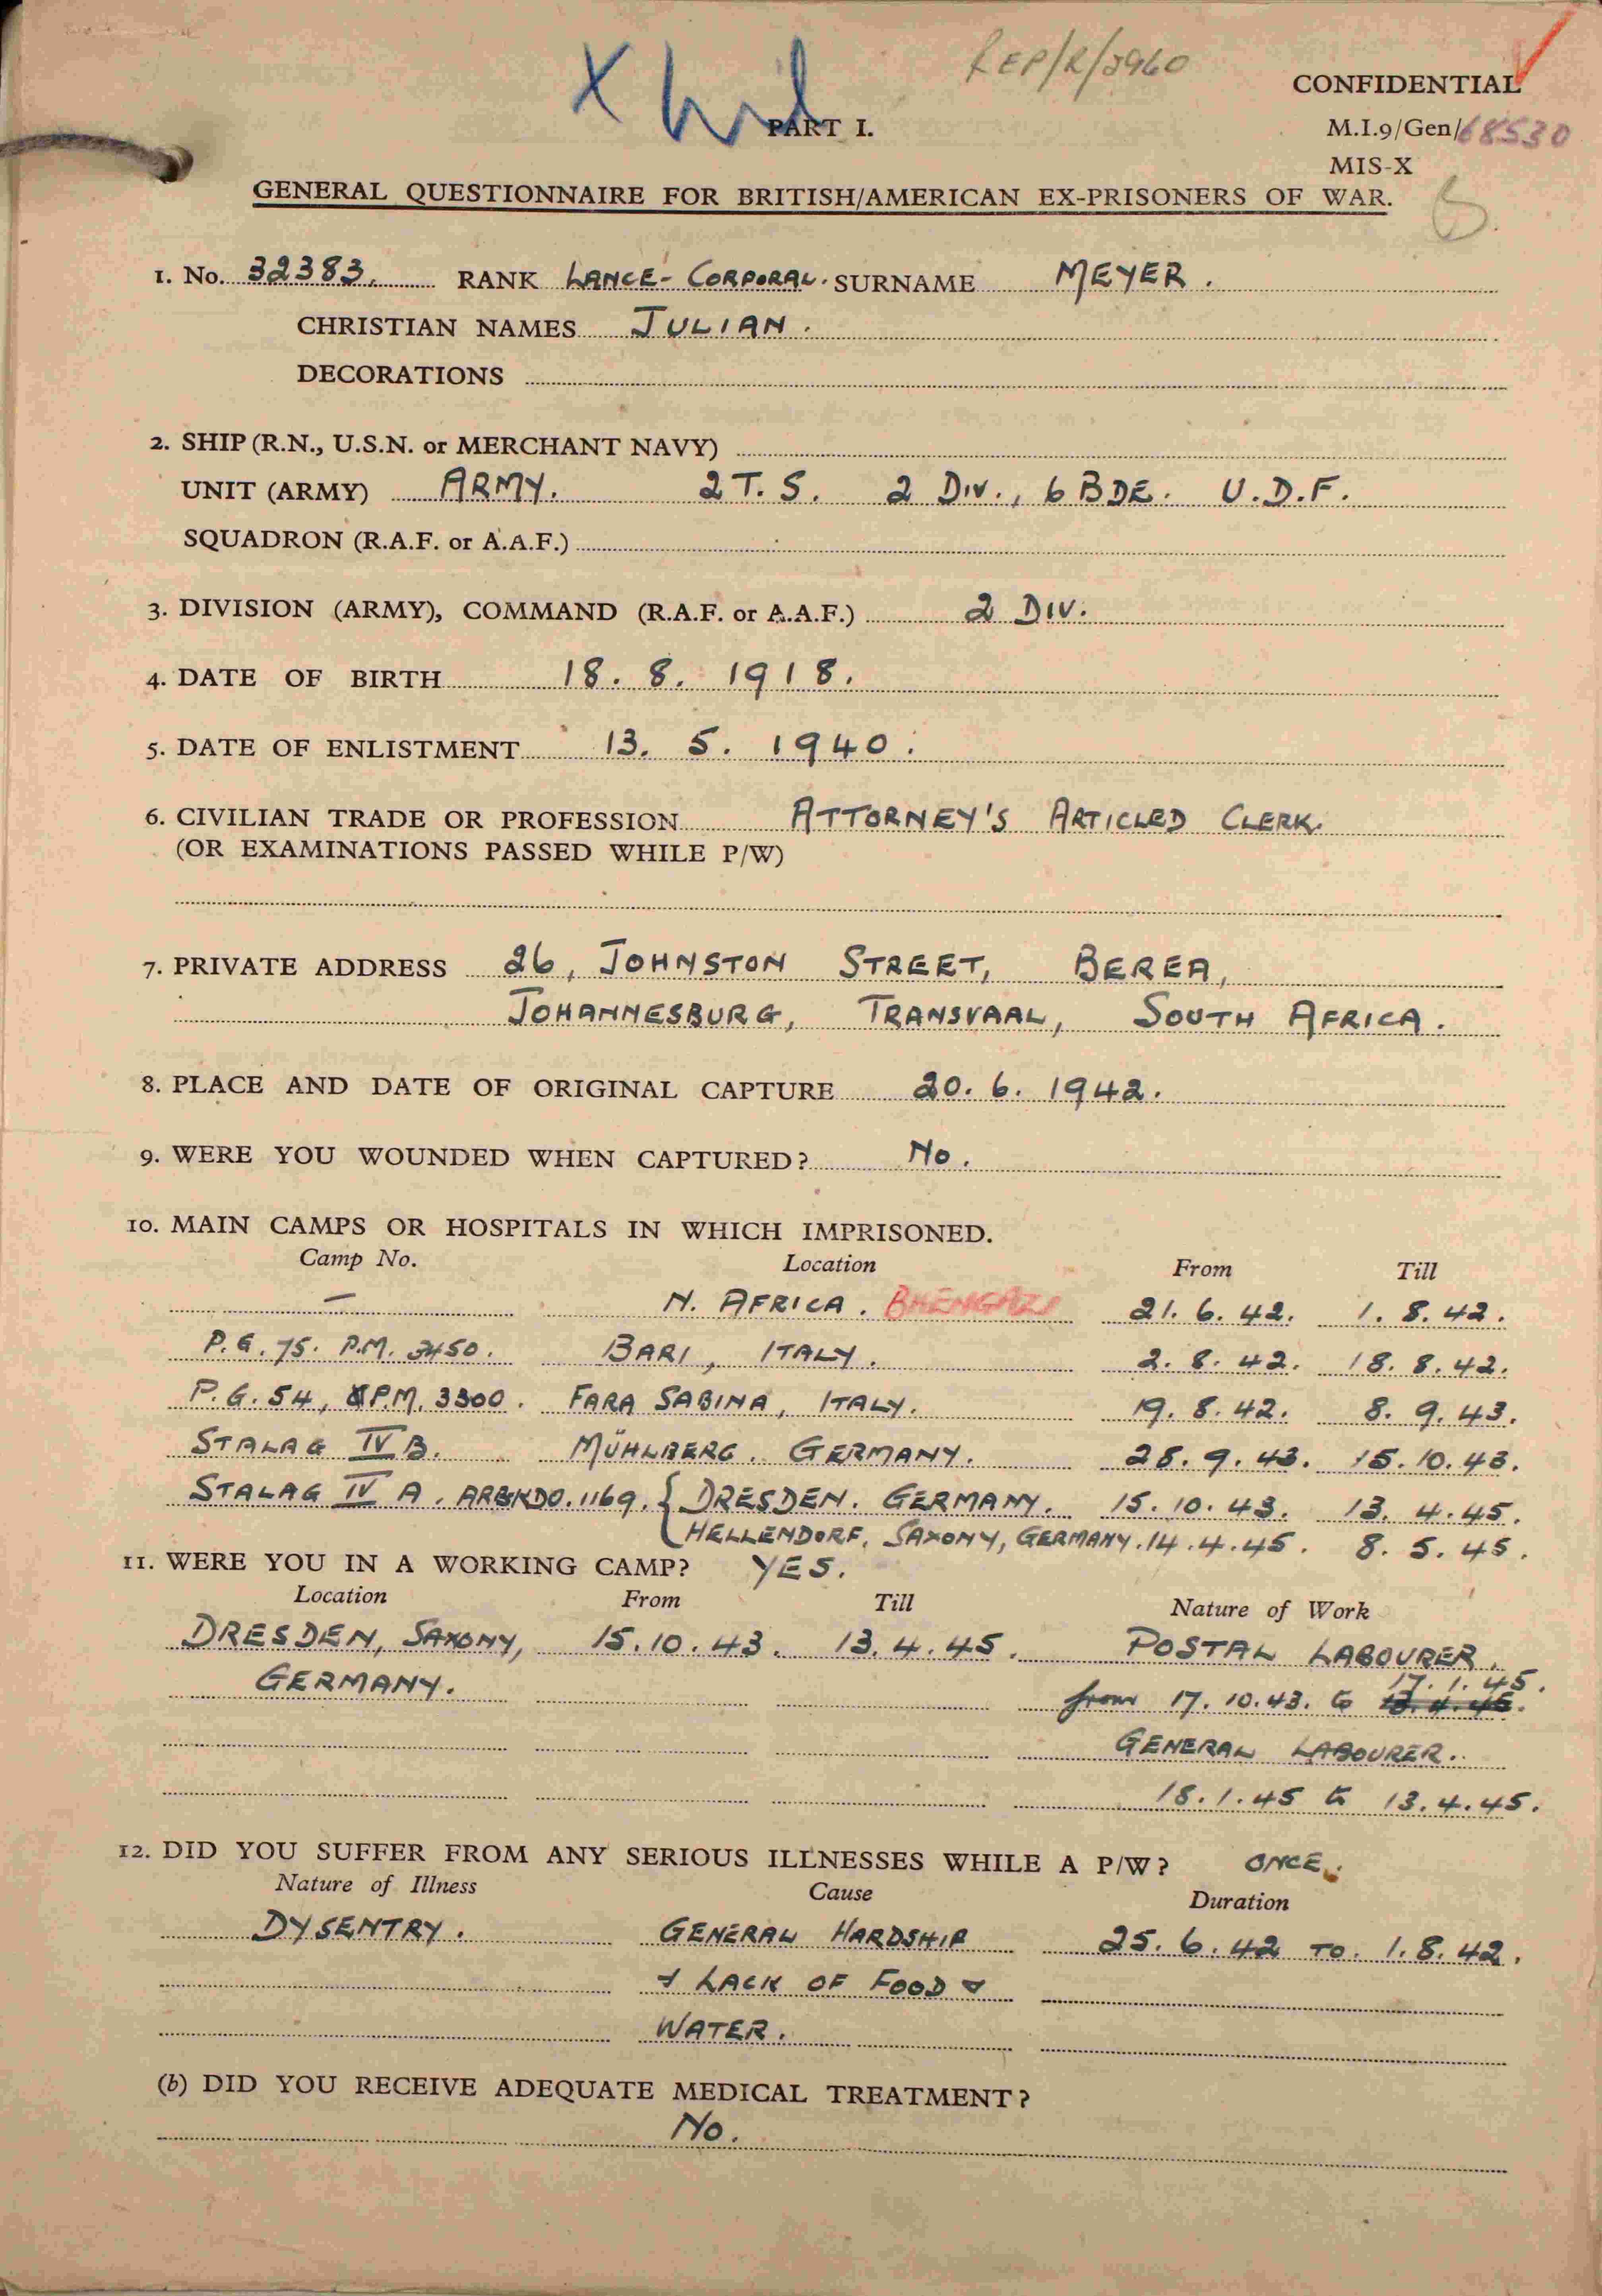 REP/R/2960
CONFIDENTIAL
PART I.
M.I.9/Gen/68530
MIS-X
GENERAL QUESTIONNAIRE FOR BRITISH/AMERICAN EX-PRISONERS OF WAR.
1. No. 32383. RANK LANCE-CORPORAL. SURNAME MEYER.
CHRISTIAN NAMES JULIAN.
DECORATIONS
2. SHIP (R.N., U.S.N. or MERCHANT NAVY)
UNIT (ARMY) ARMY. 2 T.S. 2 DIV., 6 BDE. U.D.F.
SQUADRON (R.A.F. or A.A.F.)
3. DIVISION (ARMY), COMMAND (R.A.F. or A.A.F.) 2 DIV.
4. DATE OF BIRTH 18. 8. 1918.
5. DATE OF ENLISTMENT 13. 5. 1940.
6. CIVILIAN TRADE OR PROFESSION ATTORNEY'S ARTICLED CLERK.
(OR EXAMINATIONS PASSED WHILE P/W)
7. PRIVATE ADDRESS 26, JOHNSTON STREET, BEREA,
JOHANNESBURG, TRANSVAAL, SOUTH AFRICA.
8. PLACE AND DATE OF ORIGINAL CAPTURE 20. 6. 1942.
9. WERE YOU WOUNDED WHEN CAPTURED? No.
10. MAIN CAMPS OR HOSPITALS IN WHICH IMPRISONED.
Camp No. Location From Till
— N. AFRICA. BHENGAZI 21. 6. 42. 1. 8. 42.
P.G. 75. P.M. 3450. BARI, ITALY. 2. 8. 42. 18. 8. 42.
P.G. 54, P.M. 3300. FARA SABINA, ITALY. 19. 8. 42. 8. 9. 43.
STALAG IV B. MÜHLBERG. GERMANY. 28. 9. 43. 15. 10. 43.
STALAG IV A. ARBKDO. 1169. { DRESDEN. GERMANY. 15. 10. 43. 13. 4. 45.
HELLENDORF, SAXONY, GERMANY. 14. 4. 45. 8. 5. 45.
11. WERE YOU IN A WORKING CAMP? YES.
Location From Till Nature of Work
DRESDEN, SAXONY, 15. 10. 43. 13. 4. 45. POSTAL LABOURER.
17. 1. 45.
GERMANY. from 17. 10. 43. to 13. 4. 45.
GENERAL LABOURER.
18. 1. 45 to 13. 4. 45.
12. DID YOU SUFFER FROM ANY SERIOUS ILLNESSES WHILE A P/W? ONCE.
Nature of Illness Cause Duration
DYSENTRY. GENERAL HARDSHIP 25. 6. 42 TO. 1. 8. 42.
+ LACK OF FOOD &
WATER.
(b) DID YOU RECEIVE ADEQUATE MEDICAL TREATMENT?
No.